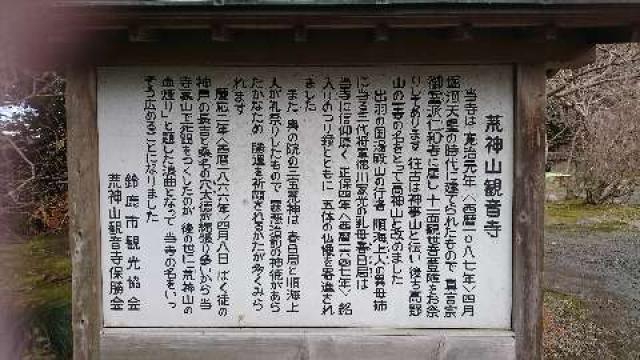 荒神山観音寺
当寺は 寛治元年〈西暦一〇八七年〉四月
堀河天皇の時代に建てられたもので 真言宗
御室派仁和寺に属し 十一面観世音菩薩をお祭
りしてあります 往古は神事山と伝い 後ち高野
山の一寺の名をとって高神山と改めました
出羽の国湯殿山の行者 順海上人の異母姉
に当る三代将軍徳川家光の乳母春日局は
当寺に信仰厚く 正保四年〈西暦一六四七年〉銘
入りのつり鐘とともに 五体の仏像を寄進され
ました
また 奥の院の三宝荒神は 春日局と順海上
人が礼祭りしたもので 霊験治顕の神徳があら
たかなため 勝運を祈願されるかたが多くみら
れます
慶応二年〈西暦一八六六年〉四月八日 ばく徒の
神戸の長吉と桑名の穴太徳が縄張り争いから 当
寺裏山で死闘をつくしたのが 後の世に「荒神山の
血煙り」と題した浪曲となって 当寺の名をいっ
そう広めることになりました
鈴鹿市観光協会
荒神山観音寺保勝会